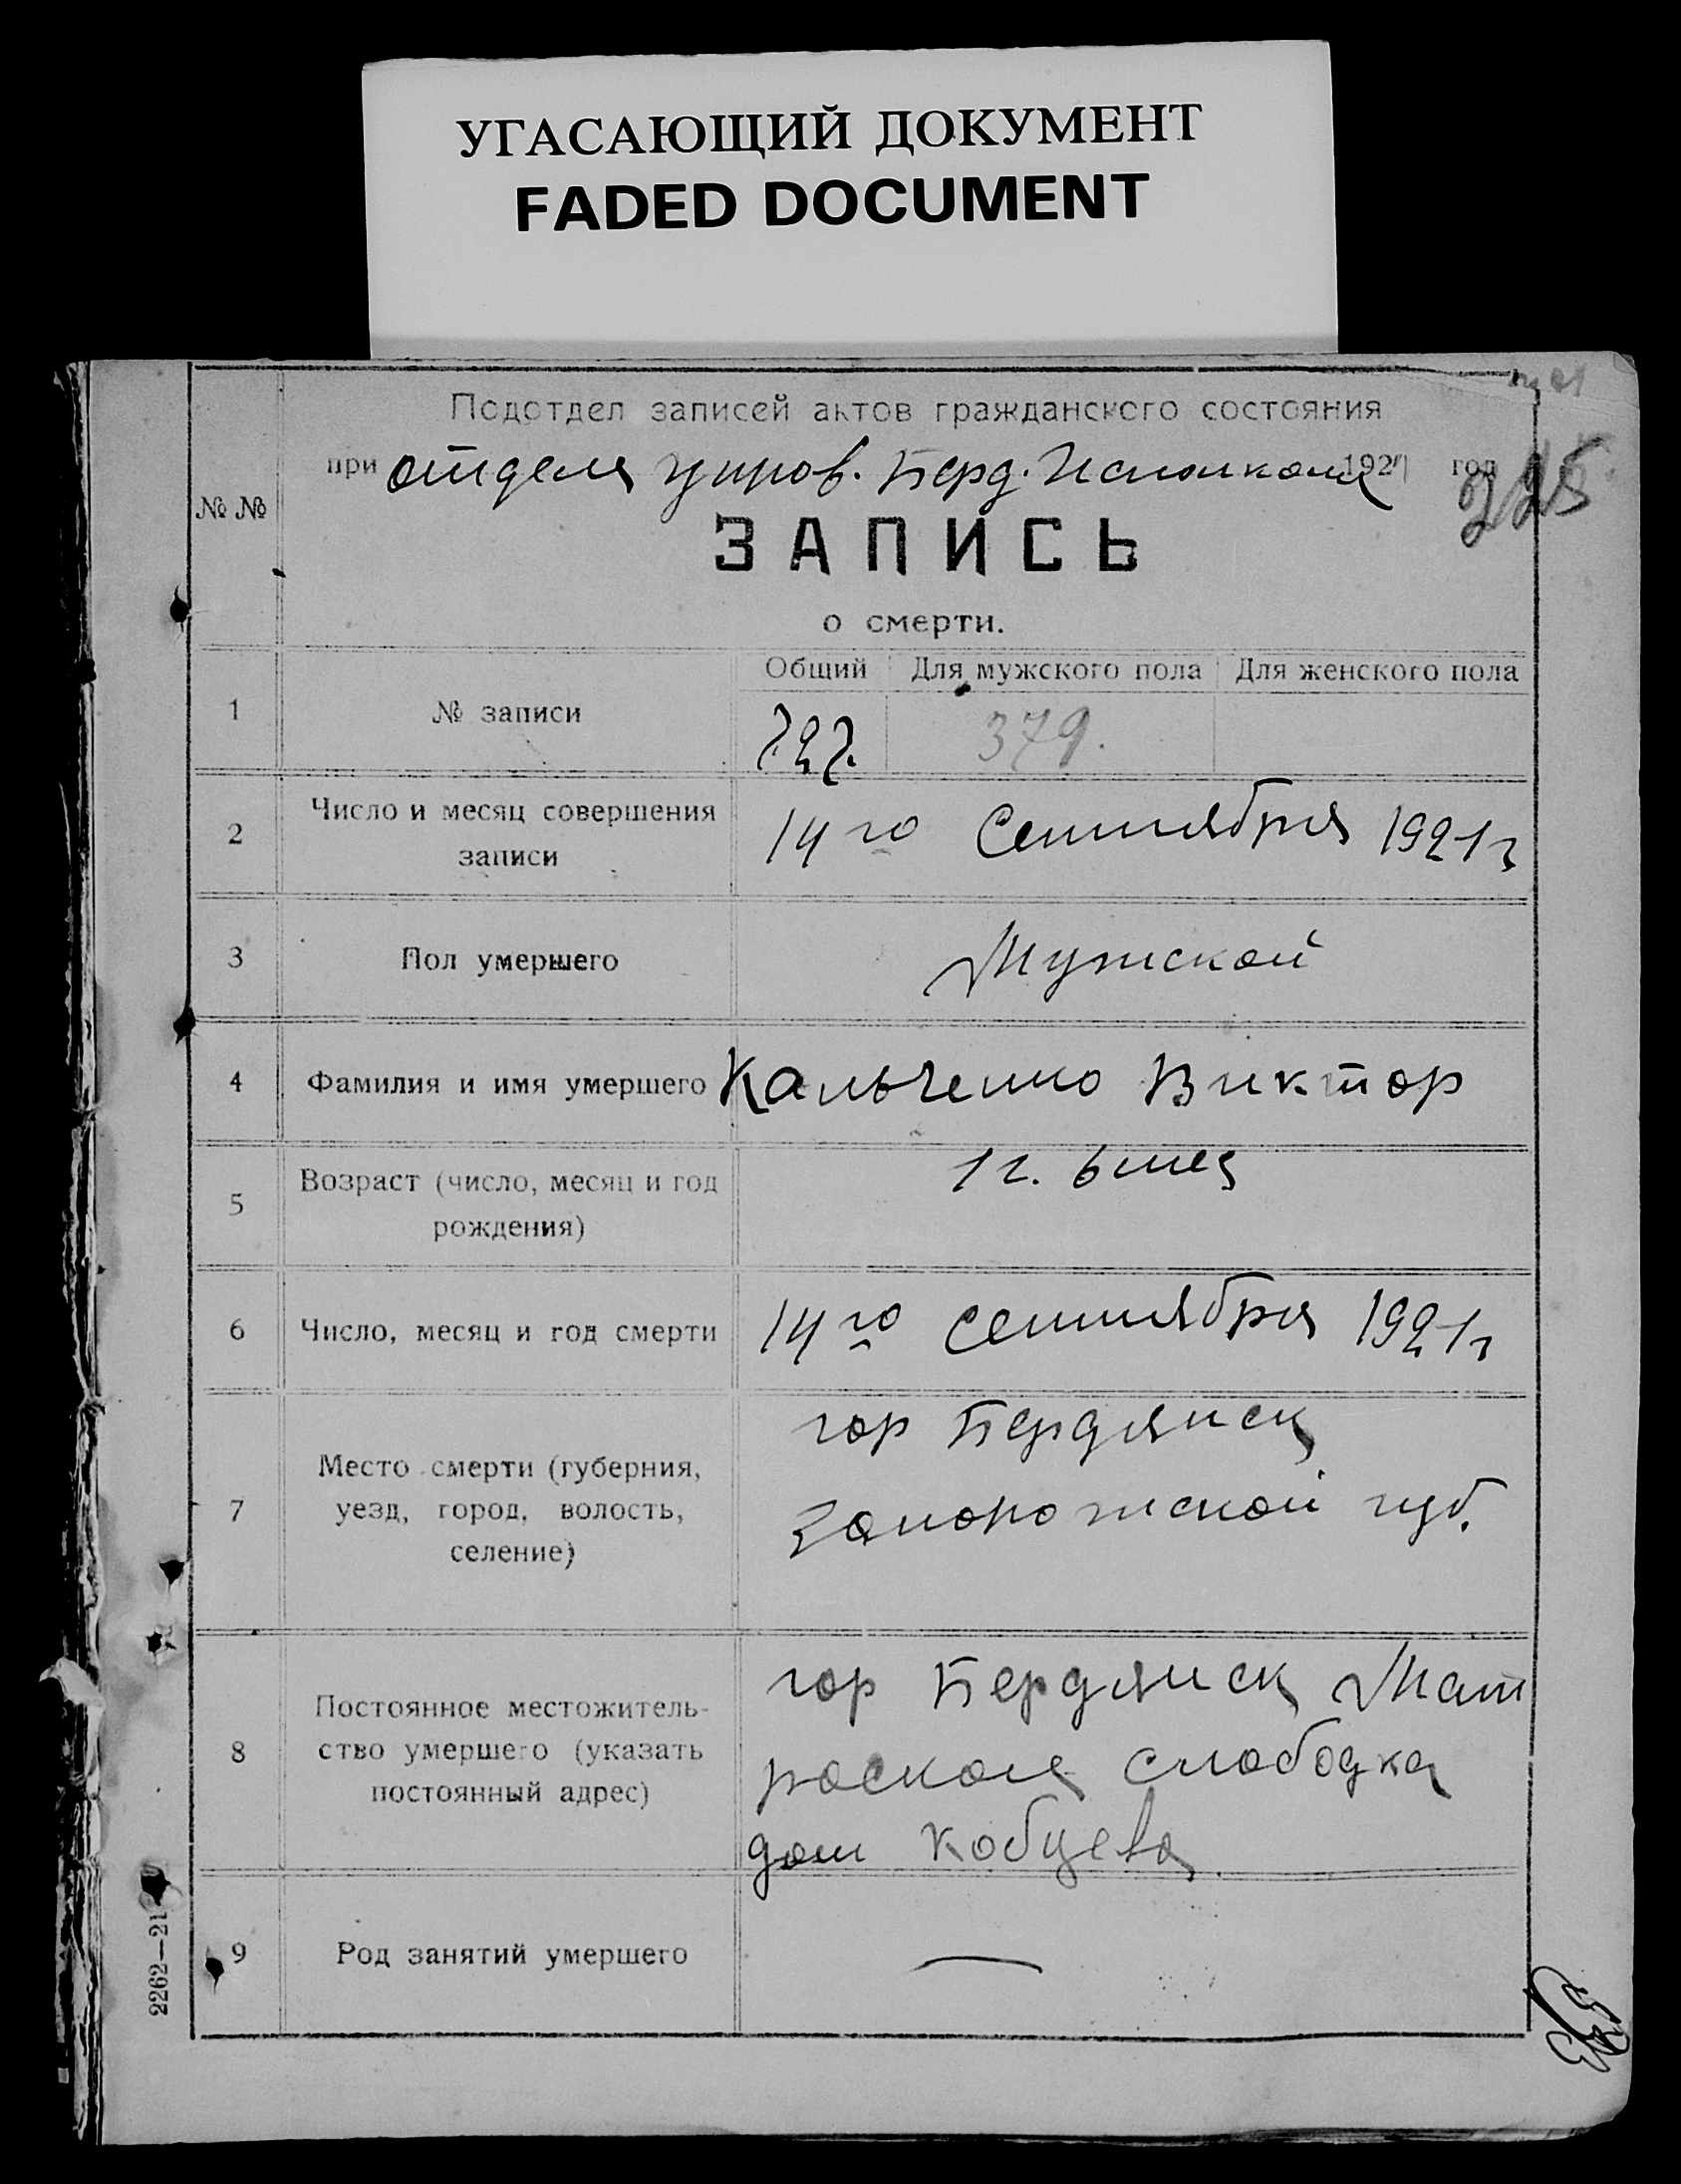 УГАСАЮЩИЙ ДОКУМЕНТ
FADED DOCUMENT
Подотдел записей актов гражданского состояния
при отдела управ. Берд. Исполкома 1921 год
225
№ №
ЗАПИСЬ
о смерти.
Общий Для мужского пола Для женского пола
1 № записи 727. 379.
2 Число и месяц совершения
записи
14го Сентября 1921г
3 Пол умершего Мужской
4 Фамилия и имя умершего Кальченко Виктор
5 Возраст (число, месяц и год
рождения)
1 г. 6 мес
6 Число, месяц и год смерти 14го Сентября 1921г
7 Место смерти (губерния,
уезд, город, волость,
селение)
гор Бердянск
Запорожской губ.
8 Постоянное местожитель-
ство умершего (указать
постоянный адрес)
гор Бердянск Мат
роская слободка
дом Кобцева
9 Род занятий умершего —
2262—21